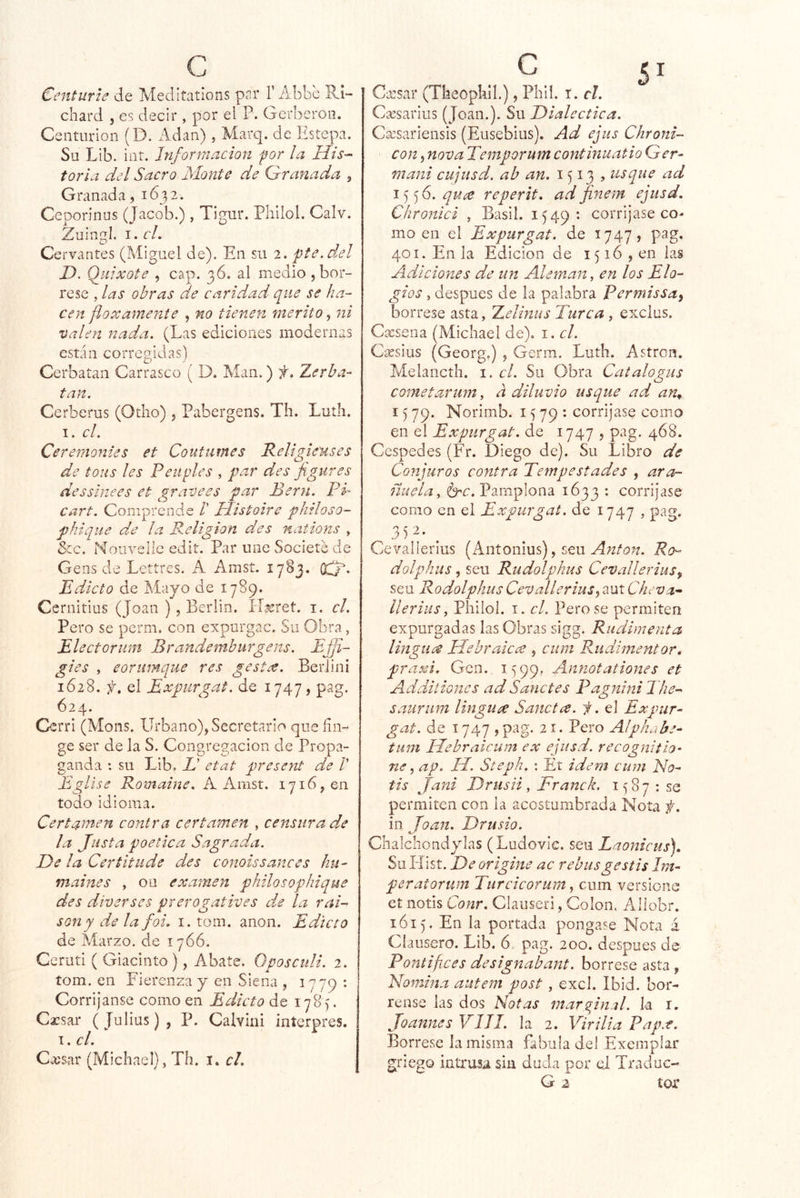 C
Centurie de Meditations par l' Abbè Ri-
chard , es decir , por el P. Gerberon.
Centurion (D. Adan) , Marq. de Estepa.
Su Lib. int. Informacion por la His-
toria del Sacro Monte de Granada ,
Granada, 1632.
Ceporinus (Jacob.) , Tigur. Philol. Calv.
Zuingl. 1. cl.
Cervantes (Miguel de). En su 2. pte. del
D. Quixote , cap. 36. al medio , bor-
rese , las obras de caridad que se ha-
cen floxamente , no tienen merito, ni
valen nada. (Las ediciones modernas
están corregidas)
Cerbatan Carrasco ( D. Man. ) ℣. Zerba-
tan.
Cerberus (Otho) , Pabergens. Th. Luth.
1. cl.
Ceremonies et Coutumes Religieuses
de tous les Peuples , par des figures
dessinees et gravees par Bern. Pi-
cart. Comprende l' Histoire philoso-
phique de la Religion des nations ,
&c. Nouvelle edit. Par une Societè de
Gens de Lettres. A Amst. 1783. ☞.
Edicto de Mayo de 1789.
Cernitius (Joan ) , Berlin. Hæret. 1. cl.
Pero se perm. con expurgac. Su Obra,
Electorum Brandemburgens. Effi-
gies , eorumque res gestæ. Berlini
1628. ℣. el Expurgat. de 1747, pag.
624.
Cerri (Mons. Urbano), Secretario que fin-
ge ser de la S. Congregacion de Propa-
ganda : su Lib. L' etat present de l'
Eglise Romaine. A Amst. 1716, en
todo idioma.
Certamen contra certamen , censura de
la Justa poetica Sagrada.
De la Certitude des conoissances hu-
maines , ou examen philosophique
des diverses prerogatives de la rai-
son y de la foi. 1. tom. anon. Edicto
de Marzo. de 1766.
Ceruti ( Giacinto ) , Abate. Oposculi. 2.
tom. en Fierenza y en Siena , 1779 :
Corrijanse como en Edicto de 1785.
Cæsar ( Julius) , P. Calvini interpres.
1. cl.
Cæsar (Michael), Th. 1. cl.
C 51
Cæsar (Theophil.) , Phil. 1. cl.
Cæsarius (Joan.). Su Dialectica.
Cæsariensis (Eusebius). Ad ejus Chroni-
con, nova Temporum continuatio Ger-
mani cujusd. ab an. 1513 , usque ad
1556. quæ reperit. ad finem ejusd.
Chronici , Basil. 1549 : corrijase co-
mo en el Expurgat. de 1747, pag.
401. En la Edicion de 1516 , en las
Adiciones de un Aleman, en los Elo-
gios , despues de la palabra Permissa,
borrese asta, Zelinus Turca , exclus.
Cæsena (Michael de). 1. cl.
Cæsius (Georg.) , Germ. Luth. Astron.
Melancth. 1. cl. Su Obra Catalogus
cometarum, à diluvio usque ad an.
1579. Norimb. 1579 : corrijase como
en el Expurgat. de 1747 , pag. 468.
Cespedes (Fr. Diego de). Su Libro de
Conjuros contra Tempestades , ara-
ñuela, &c. Pamplona 1633 : corrijase
como en el Expurgat. de 1747 , pag.
352.
Cevallerius (Antonius), seu Anton. Ro-
dolphus , seu Rudolphus Cevallerius,
seu Rodolphus Cevallerius, aut Cheva-
llerius, Philol. 1. cl. Pero se permiten
expurgadas las Obras sigg. Rudimenta
linguæ Hebraicæ , cum Rudimentor.
praxi. Gen. 1599. Annotationes et
Additiones ad Sanctes Pagnini The-
saurum linguæ Sanctæ. ℣. el Expur-
gat. de 1747 , pag. 21. Pero Alphabe-
tum Hebraicum ex ejusd. recognitio-
ne, ap. H. Steph. : Et idem cum No-
tis Jani Drusii, Franck. 1587 : se
permiten con la acostumbrada Nota ℣.
in Joan. Drusio.
Chalchondylas (Ludovic. seu Laonicus).
Su Hist. De origine ac rebus gestis Im-
peratorum Turcicorum, cum versione
et notis Conr. Clauseri, Colon. Allobr.
1615. En la portada pongase Nota á
Clausero. Lib. 6. pag. 200. despues de
Pontifices designabant. borrese asta ,
Nomina autem post , excl. Ibid. bor-
rense las dos Notas marginal. la 1.
Joannes VIII. la 2. Virilia Papæ.
Borrese la misma fabula del Exemplar
griego intrusa sin duda por el Traduc-
G 2 tor